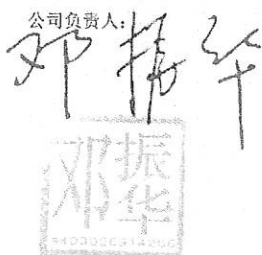 公司负责人:
邓振华
邓振华